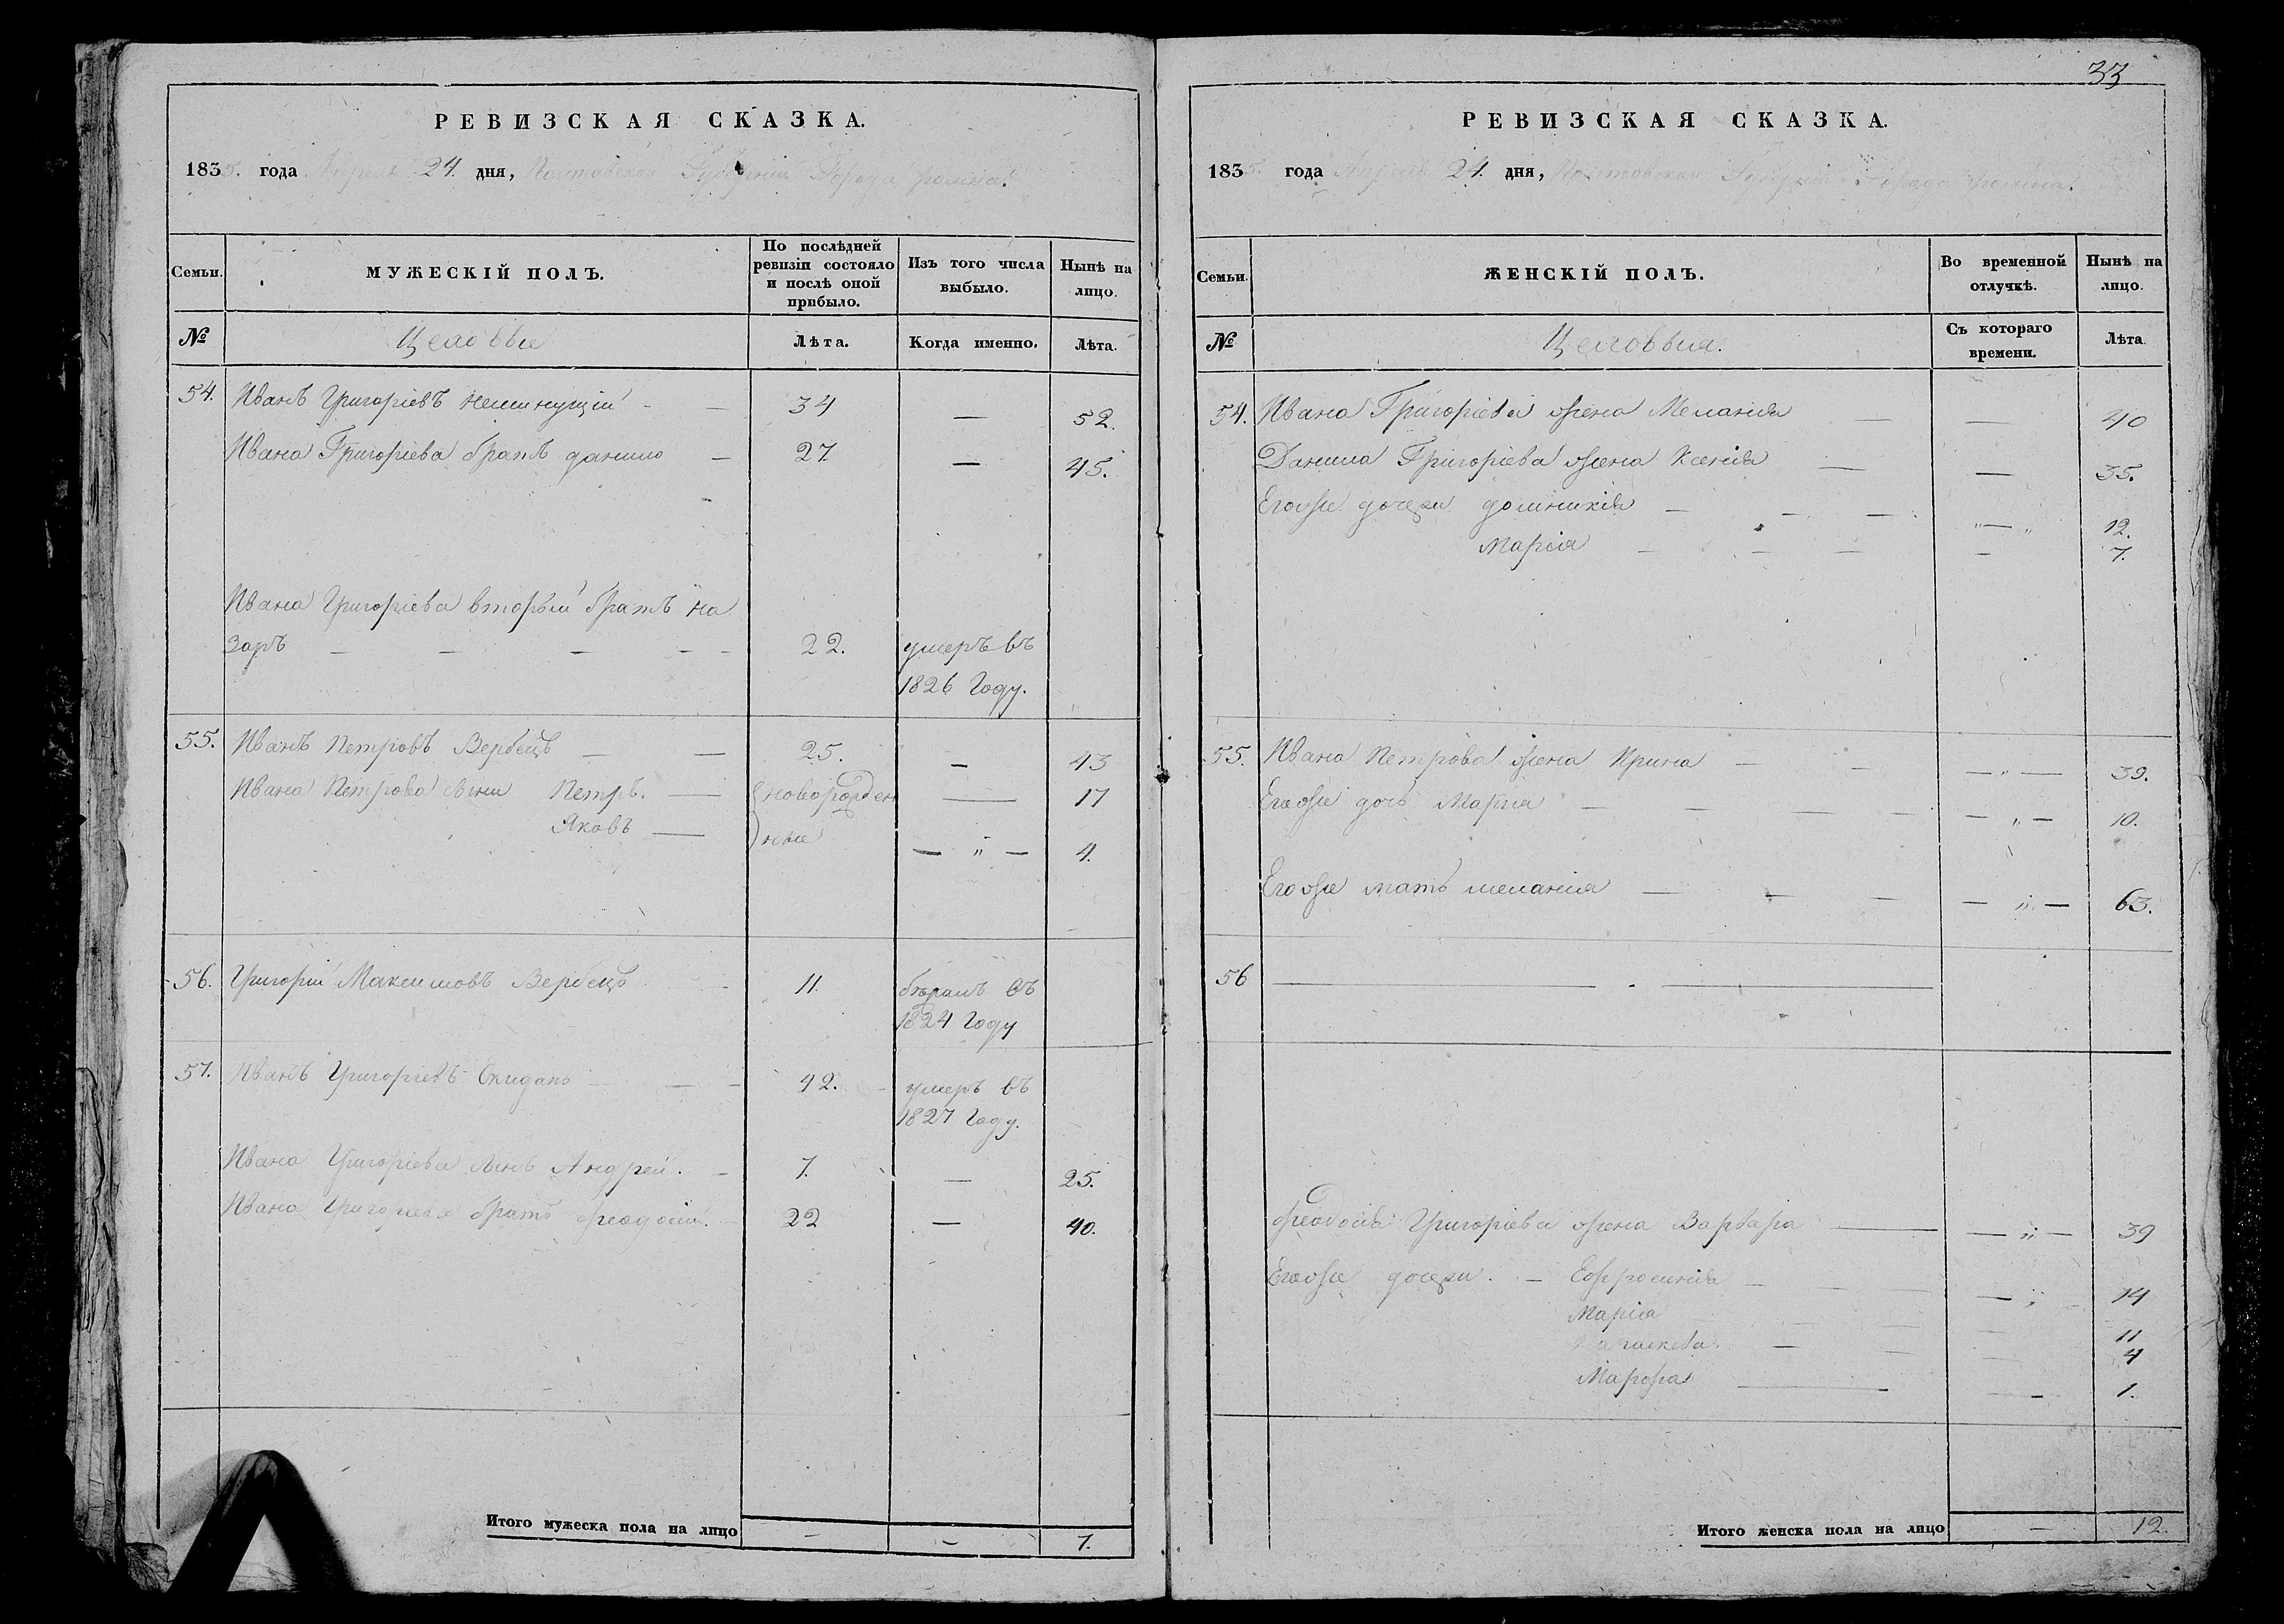 РЕВИЗСКАЯ СКАЗКА.
1835. года Апреля 24. дня, Полтавской Губернии Города Ромна.
Семьи.
МУЖЕСКІЙ ПОЛЪ.
По послѣдней ревизіи состояло и послѣ оной прибыло.
Изъ того числа выбыло.
Нынѣ на лицо.
№
Лѣта.
Когда именно.
Лѣта.
54. Иванъ Григоріевъ — 34 — 52.
Ивана Григоріева братъ данило — 27. — 45.
Ивана Григоріева вторый братъ На
заръ — — — — — 22. умеръ въ
1826 Году.
55. Иванъ Петровъ Вербецъ — — 25. — 43
Ивана Петрова сыни Петръ. — новорожден — 17
Яковъ — ные — „ — 4.
56. Григорій Максимовъ Вербецъ 11. въ
1824 Году
57. Иванъ Григоріевъ Скиданъ — — 42. умеръ въ
1827 Году.
Ивана Григоріева сынъ Андрей. — 7. — 25.
Ивана Григоріева братъ Феодосій. 22 — 40.
Итого мужеска пола на лицо — — 7.
33
РЕВИЗСКАЯ СКАЗКА.
1835. года Апреля 24. дня, Полтавской Губерніи Города Ромна.
Семьи.
ЖЕНСКІЙ ПОЛЪ.
Во временной отлучкѣ.
Нынѣ на лицо.
№
Съ котораго времени.
Лѣта.
54. Ивана Григоріева жена Меланія — — 40
Данила Григоріева жена Ксенія — — 35.
Егоже дочери домникія — — — „—„ 12.
Марія — — — — 7.
55. Ивана Петрова жена Ирина — — —„— 39.
Егоже дочь Марія — — — — — „ — 10.
Егоже мать меланія — — — — „ — 63.
56 — . —
Феодосія Григоріева жена Варвара — — „ — 39
Егоже дочери. — Ефросинія — — — — „ 14
Марія — — — 11
Параскева. — — — 4
Марфа — — 1.
Итого женска пола на лицо — 12.